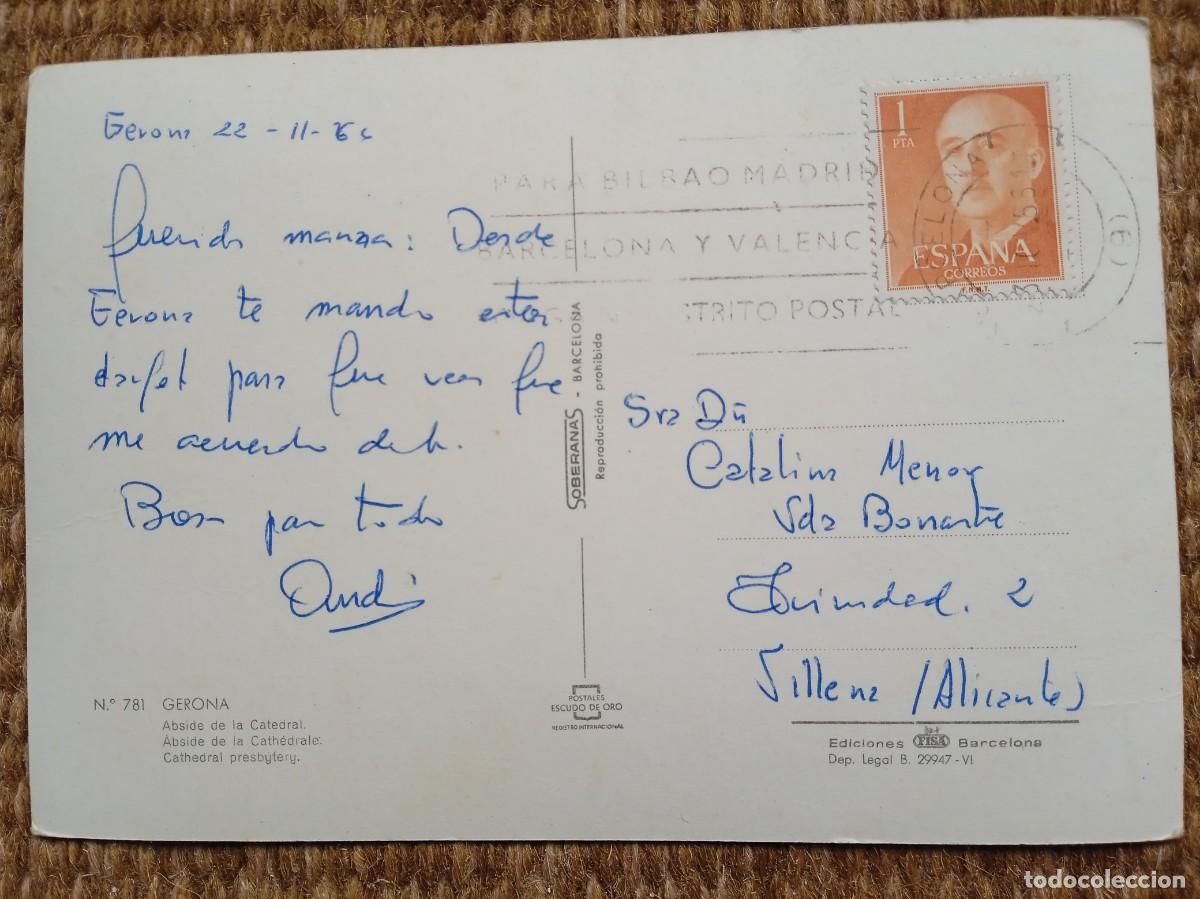 Gerona 22 - 11 - 64
Querida manza: Desde
Gerona te mando esta
para que veas que
me acuerdo de ti.
por todo
N.º 781 GERONA
Abside de la Catedral.
Abside de la Cathédrale.
Cathedral presbytery.
SOBERANAS - BARCELONA
Reproducción prohibida
POSTALES
ESCUDO DE ORO
REGISTRO INTERNACIONAL
PARA BILBAO MADRID
BARCELONA Y VALENCIA
DISTRITO POSTAL
1
PTA
ESPAÑA
CORREOS
F.N.M.T.
BARCELONA
(6)
Sra Dñ
Catalina Menor
Vda Bonastre
Trinidad. 2
Villena (Alicante)
Ediciones FISA Barcelona
Dep. Legal B. 29947 - VI
todocoleccion